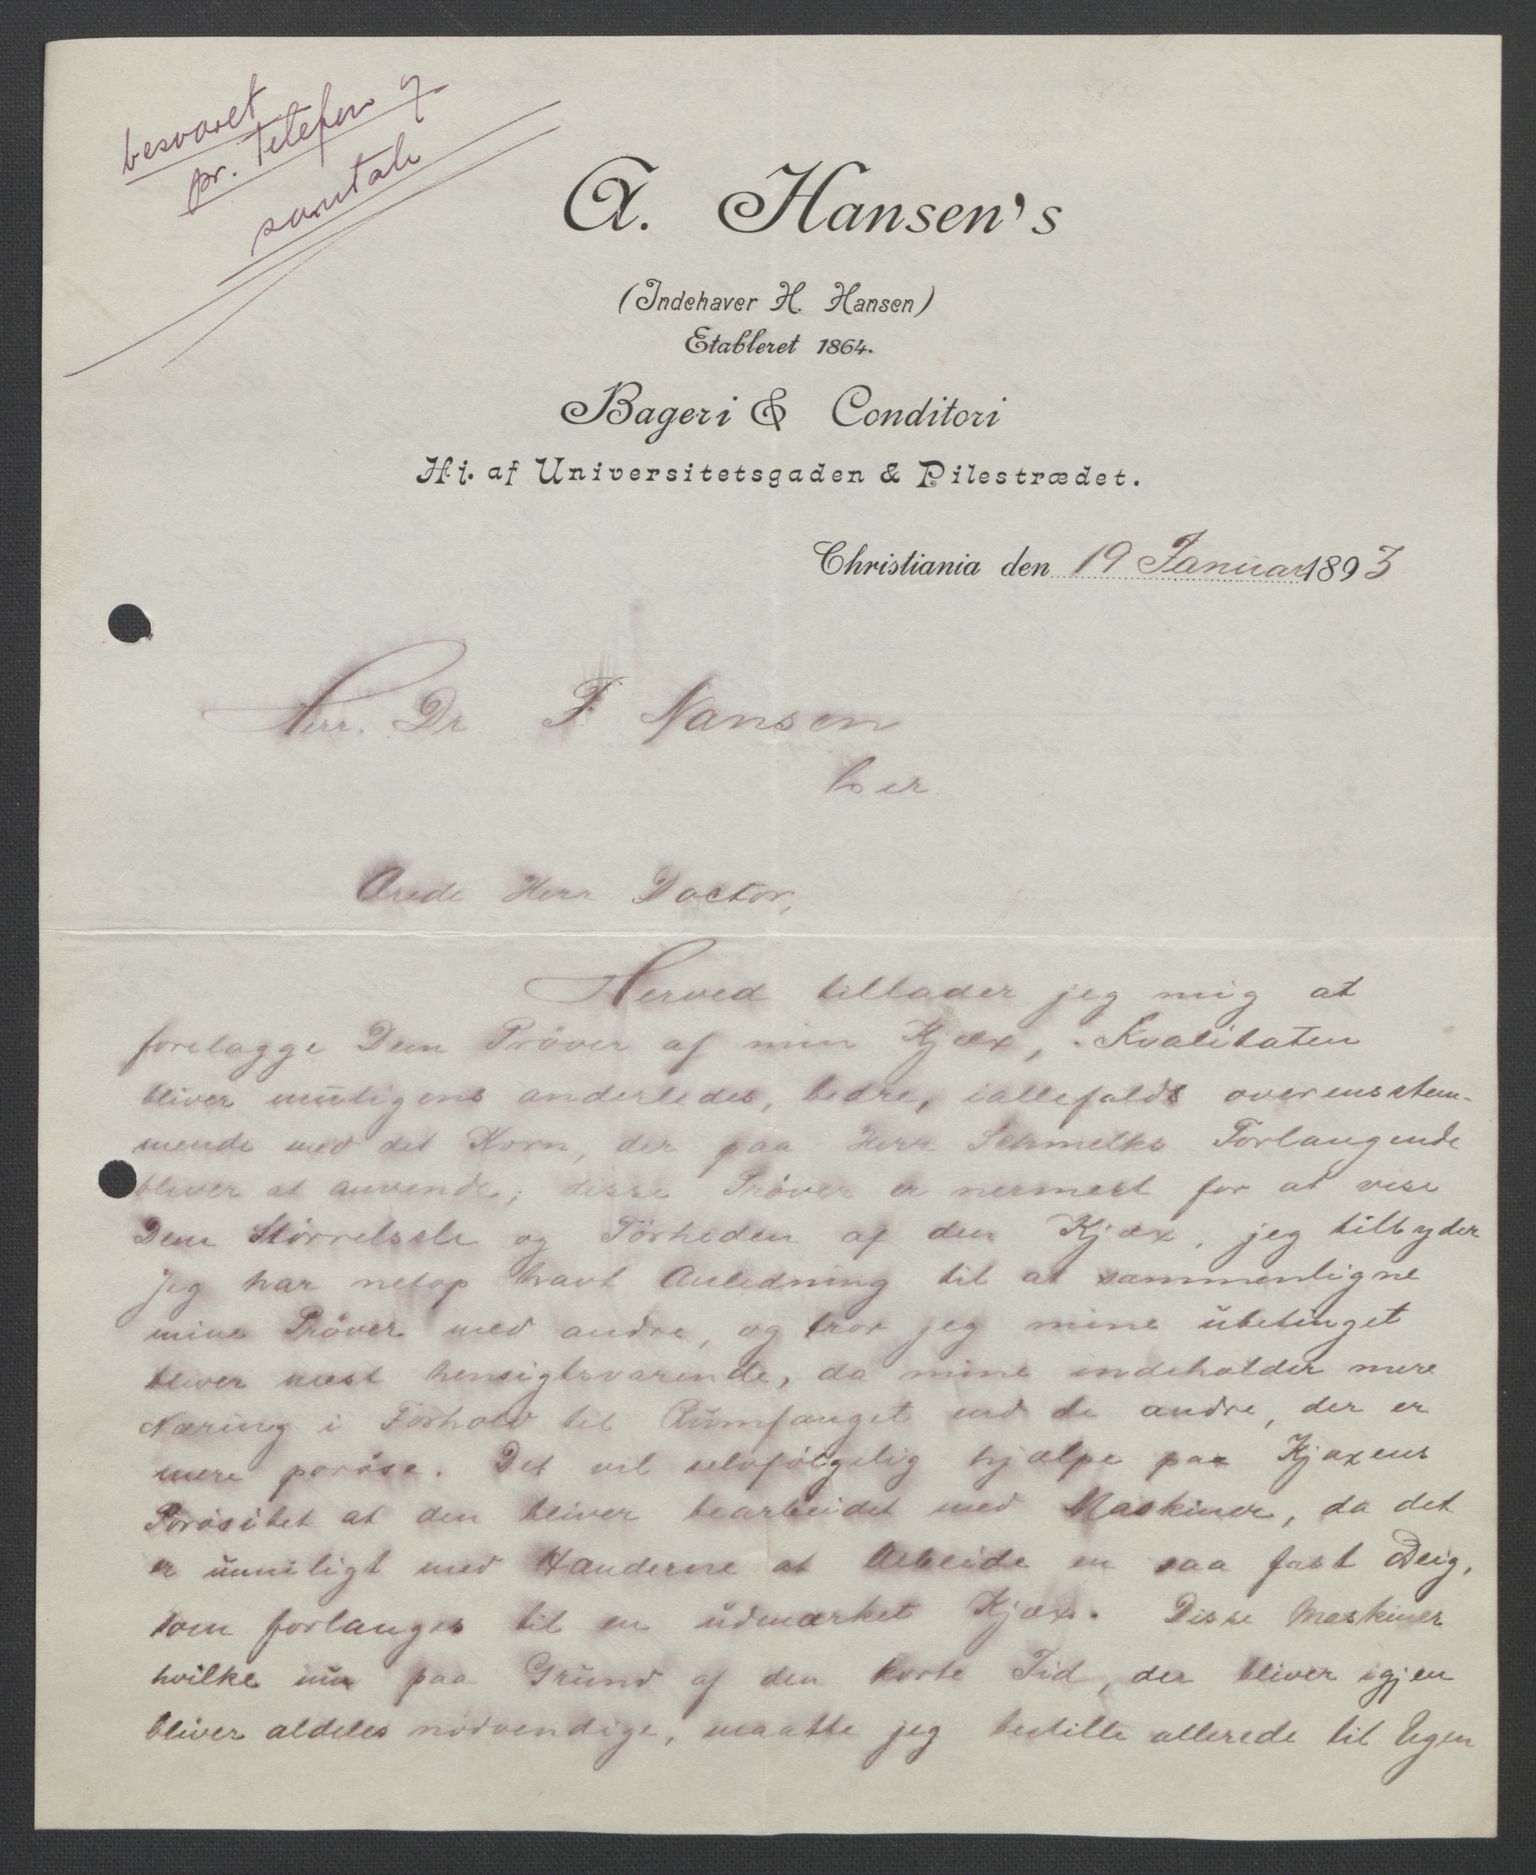 besvaret
pr. Telefon og
samtale
A. Hansen's
(Indehaver H. Hansen)
Etableret 1864.
Bageri & Conditori
Hj. af Universitetsgaden & Pilestrædet.
Christiania den 19 Januar 1893
Herr. Dr F. Nansen
her
Ærede Herr Doctor,
Herved tillader jeg mig at
forelægge Dem Prøver af min Kjæx, Kvaliteten
bliver muligens anderledes, bedre, iallefalds overensstem-
mende med det Korn, der paa Herr Schmelks Forlangende
bliver at anvende; disse Prøver er nermest for at vise
Dem Størrelsen og Tørheden af den Kjæx, jeg tilbyder
Jeg har netop havt Anledning til at sammenligne
mine Prøver med andre, og tror jeg mine ubetinget
bliver mest hensigtsvarende, da mine indeholder mere
Næring i Forhold til Rumfanget end de andre, der er
mere porøse. Det vil selvfølgelig hjælpe paa Kjæxens
Porøsitet at den bliver bearbeidet med Maskiner, da det
er umuligt med Hænderne at Arbeide en saa fast Deig,
som forlanges til en udmærket Kjæx. Disse Maskiner
hvilke nu paa Grund af den korte Tid, der bliver igjen
bliver aldeles nødvendige, maatte jeg bestille allerede til Ugen